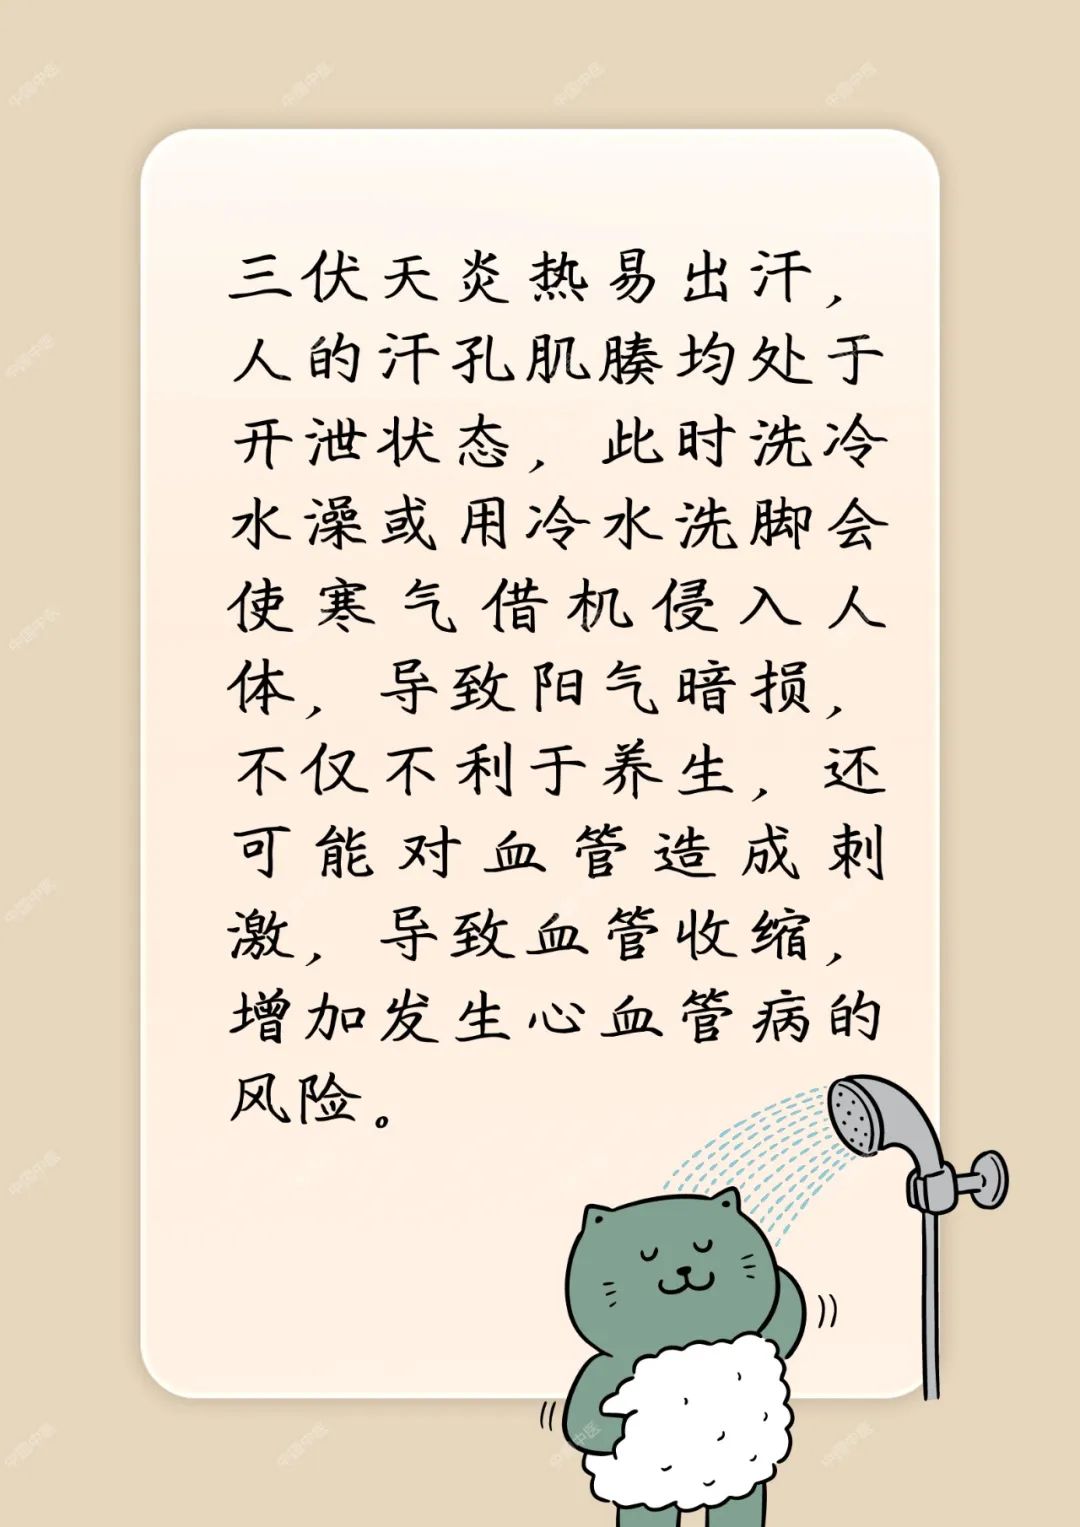 三伏天炎热易出汗，
人的汗孔肌腠均处于
开泄状态，此时洗冷
水澡或用冷水洗脚会
使寒气借机侵入人
体，导致阳气暗损，
不仅不利于养生，还
可能对血管造成刺
激，导致血管收缩，
增加发生心血管病的
风险。
中国中医